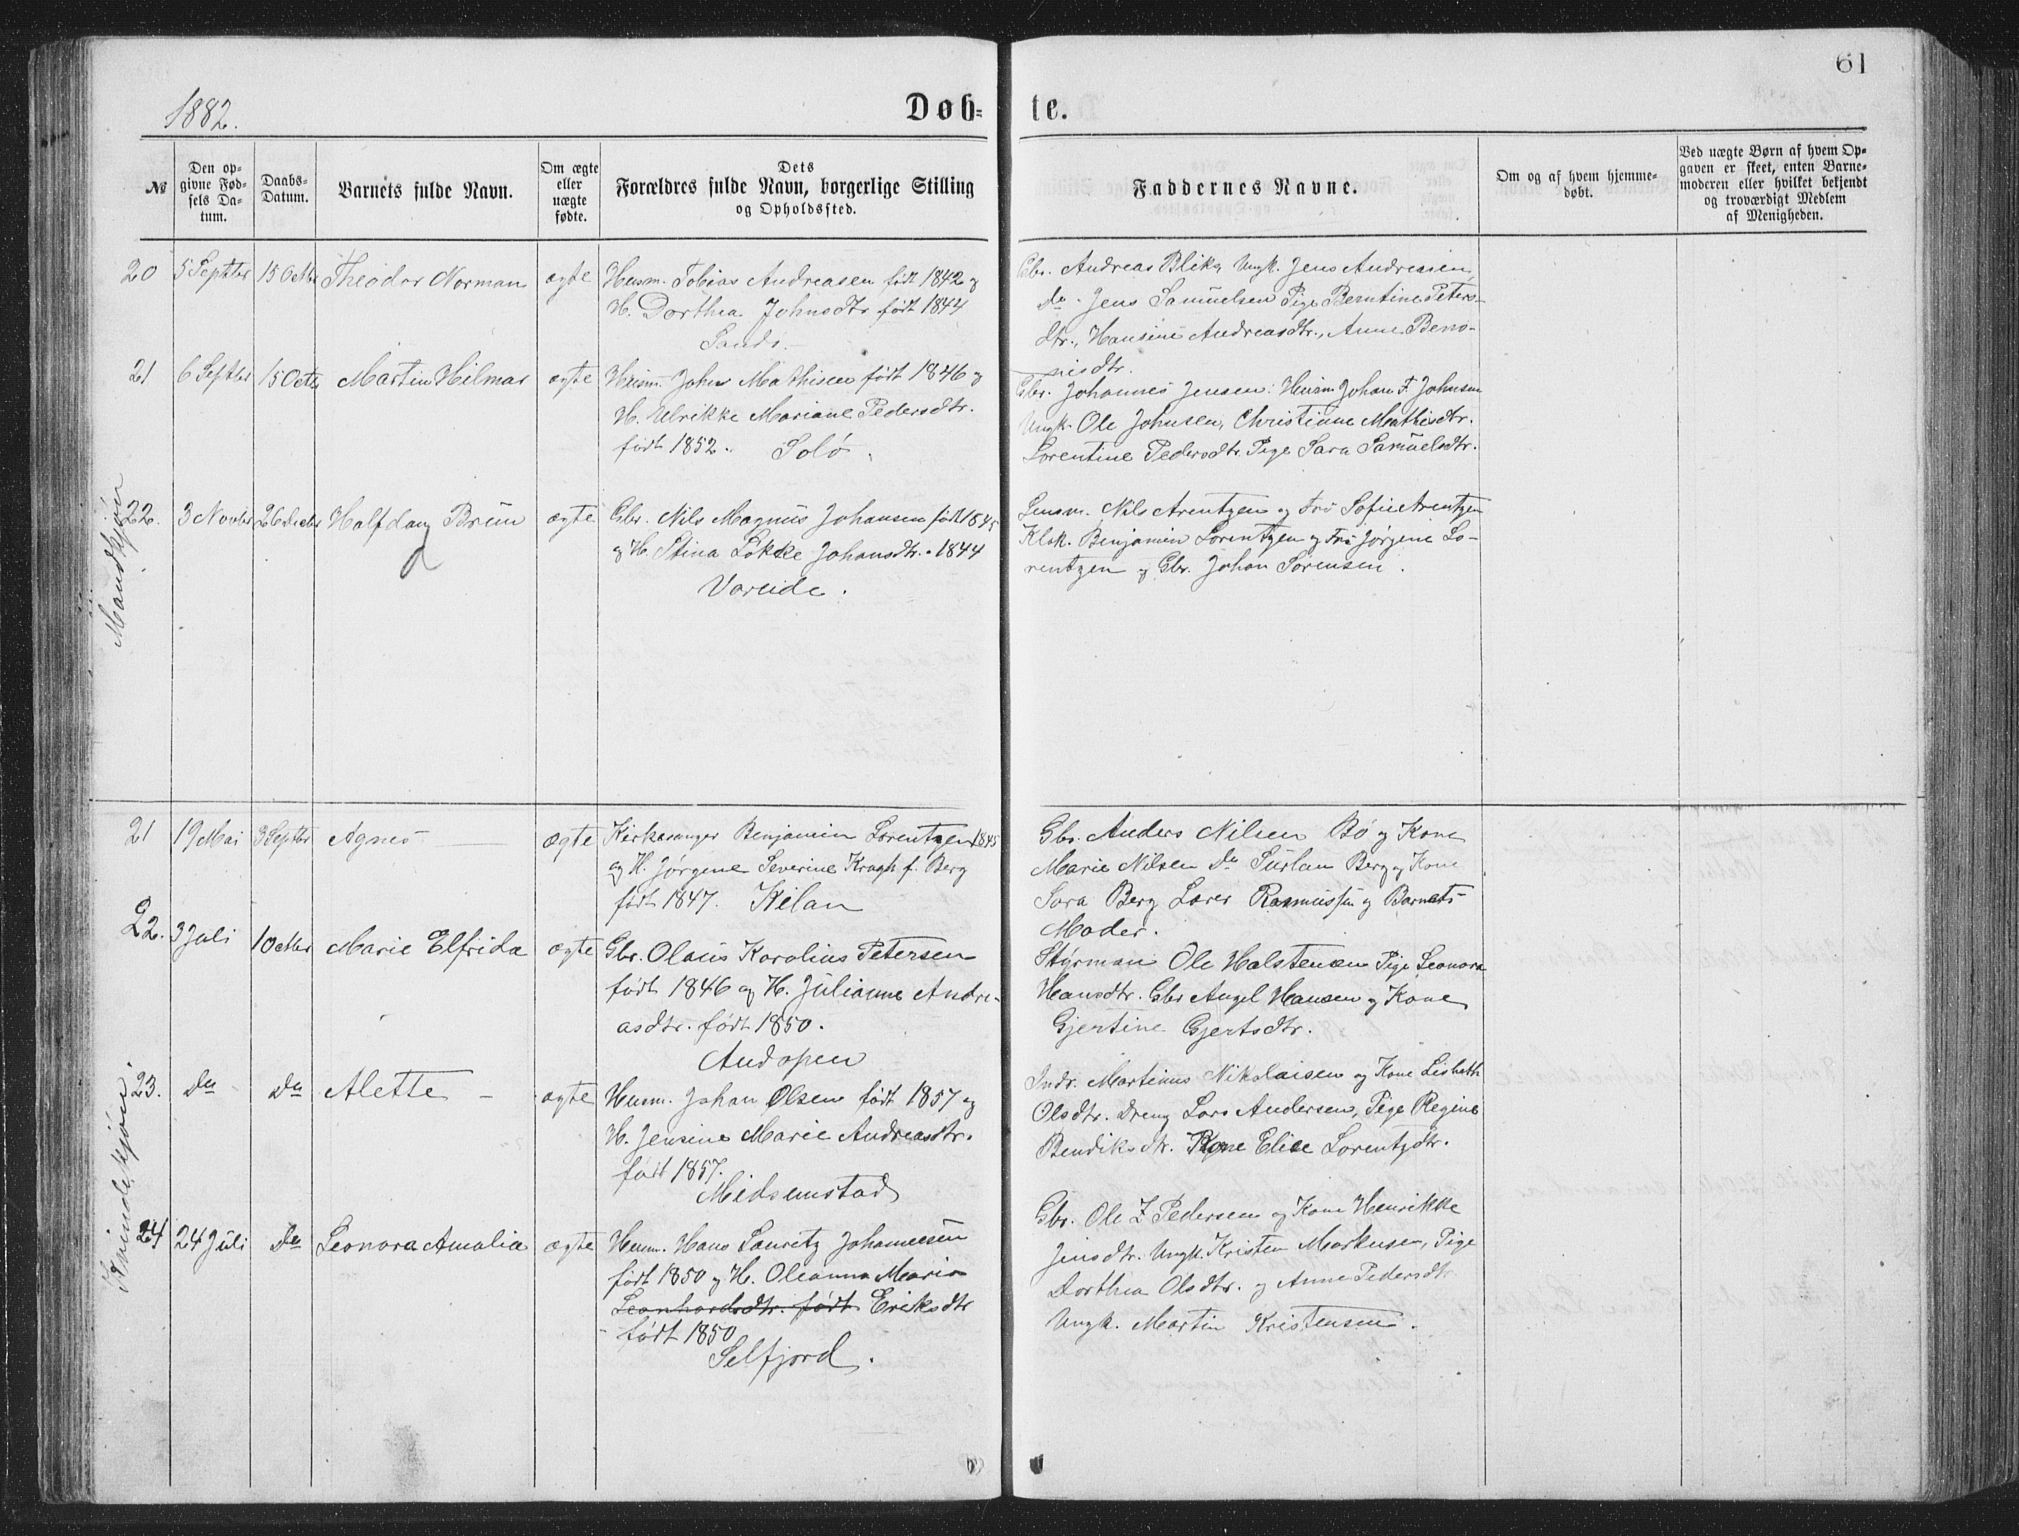 61
1882.
Døb-
te.
№
Den op-
givne Fød-
sels Da-
tum.
Daabs-
Datum.
Barnets fulde Navn.
Om ægte
eller
uægte
fødte.
Dets
Forældres fulde Navn, borgerlige Stilling
og Opholdssted.
Faddernes Navne.
Om og af hvem hjemme-
døbt.
Ved uægte Børn af hvem Op-
gaven er skeet, enten Barne-
moderen eller hvilket bekjendt
og troværdigt Medlem
af Menigheden.
Mandkjøn
20
5 Septbr
15 Octbr
Theodor Norman
ægte
Husm. Tobias Andreasen født 1842 og
H. Dorthea Johnsdtr født 1844
Sand.
Gbr. Andreas Blik, Ungk. Jens Andreasen,
Do. Jens Samuelsen Pige Berntine Peters-
dtr., Hansine Andreasdtr., Anne Beno-
nisdtr.
21
6 Septbr
15 Octbr
Martin Hilmar
ægte
Husm. John Mathisen født 1846 og
H. Ulrikke Mariane Pedersdtr.
født 1852. Solø.
Gbr. Johannes Jensen. Husm Johan F. Johnsen
Ungk. Ole Johnsen, Christianne Mathisdtr.
Lorentine Pedersdtr. Pige Sara Samuelsdtr.
22.
3 Novbr
26 Decbr
Halfdan Brun
ægte
Gbr. Nils Magnus Johansen født 1845
og H. Stina Løkke Johansdtr. " 1844
Vareide.
Lensm. Nils Arentzen og Fru Sofie Arentzen
Klok. Benjamin Lorentzen og Fru Jørgine Lo-
rentzen og Gbr. Johan Sørensen.
Kvindekjøn
21
19 Mai
3 Septbr
Agnes
ægte
Kirkesanger Benjamin Lorentzen 1845
og H. Jørgine Severine Kragh f. Berg
født 1847. Kilan
Gbr. Anders Nilsen Bø og Kone
Marie Nilsen Do Surlan Berg og Kone
Sara Berg Lærer Rasmussen og Barnets
Moder.
22.
3 Juli
1 Octbr
Marie Elfrida
ægte
Gbr. Olaus Karolius Petersen
født 1846 og H. Julianne Andre-
asdtr. født 1850.
Andopen
Styrman Ole Halstensen Pige Leonora
Hansdtr. Gbr Angel Hansen og Kone
Gjertine Gjertsdtr.
23.
Do
Do
Alette
ægte
Husm. Johan Olsen født 1857 og
H. Jensine Marie Andreasdtr.
født 1857.
Midsemstad
Indr. Martinus Nikolaisen og Kone Lisbeth
Olsdtr. Dreng Lars Andersen, Pige Regine
Bendiksdtr. Kone Elise Lorentzdtr.
24
24 Juli
Do
Leonora Amalia
ægte
Husm. Hans Lauritz Johannesen
født 1850 og H. Oleanna Maria
Leonhardsdtr. født Eriksdtr
født 1850
Selfjord.
Gbr. Ole Z Pedersen og Kone Henrikke
Jensdtr. Ungk. Kristen Markusen, Pige
Dorthea Olsdtr. og Anne Pedersdtr
Ungk. Martin Kristensen.